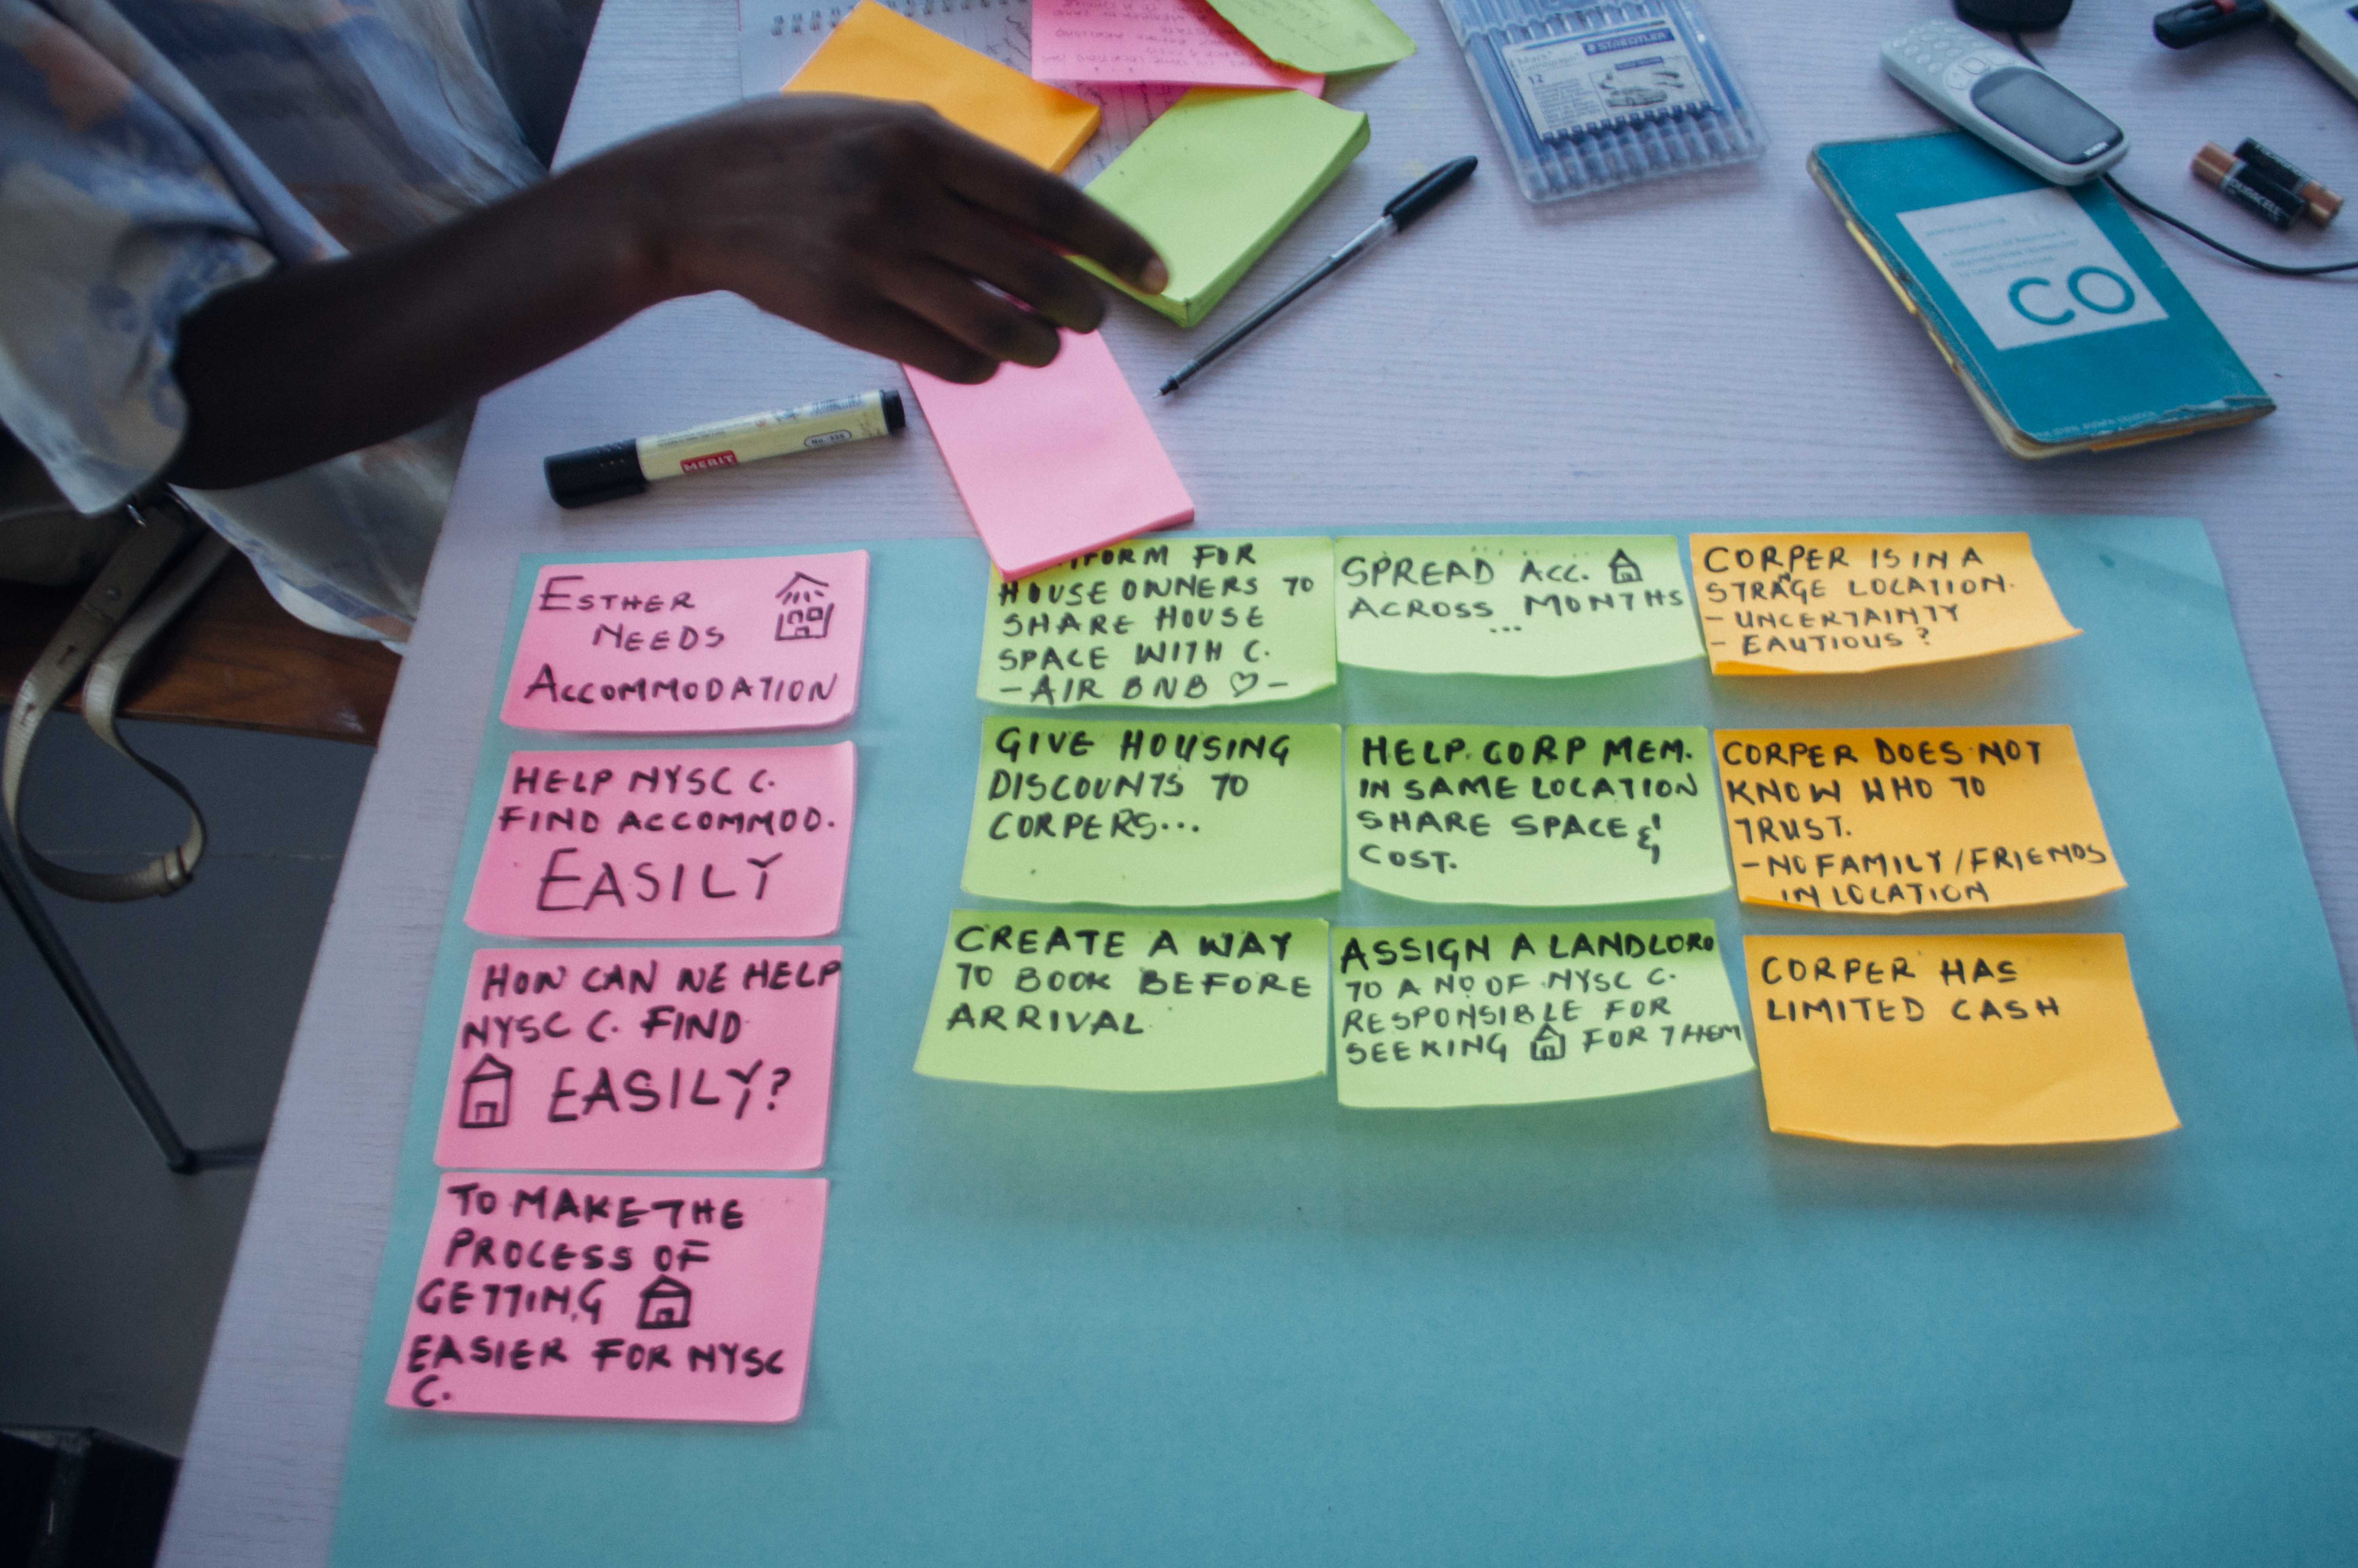 STAEDTLER
12
CO
DURACELL
MERIT
No. 335
ESTHER
NEEDS
ACCOMMODATION
HELP NYSC C.
FIND ACCOMMOD.
EASILY
HOW CAN WE HELP
NYSC C. FIND
EASILY?
TO MAKE THE
PROCESS OF
GETTING
EASIER FOR NYSC
C.
FORM FOR
HOUSE OWNERS TO
SHARE HOUSE
SPACE WITH C.
- AIR BNB ♡ -
GIVE HOUSING
DISCOUNTS TO
CORPERS...
CREATE A WAY
TO BOOK BEFORE
ARRIVAL
SPREAD ACC.
ACROSS ... MONTHS
HELP CORP MEM.
IN SAME LOCATION
SHARE SPACE &
COST.
ASSIGN A LANDLORD
TO A NO OF NYSC C.
RESPONSIBLE FOR
SEEKING FOR THEM
CORPER IS IN A
STRANGE LOCATION.
- UNCERTAINTY
- EAUTIOUS?
CORPER DOES NOT
KNOW WHO TO
TRUST.
- NO FAMILY/FRIENDS
IN LOCATION
CORPER HAS
LIMITED CASH